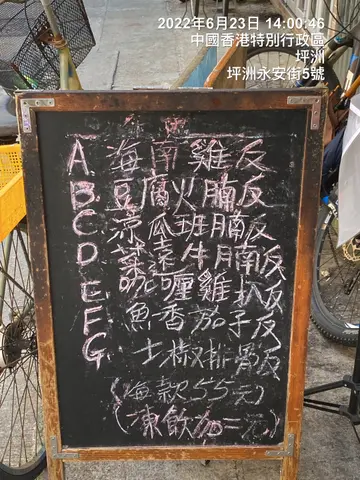 2022年6月23日 14:00:46
中國香港特別行政區
坪洲
坪洲永安街5號
A. 海南雞反
B. 豆腐火腩反
C 涼瓜班腩反
D 菜遠牛腩反
E. 咖喱雞扒反
F 魚香茄子反
G 士椒排骨反
(每款55元)
(凍飲加二元)